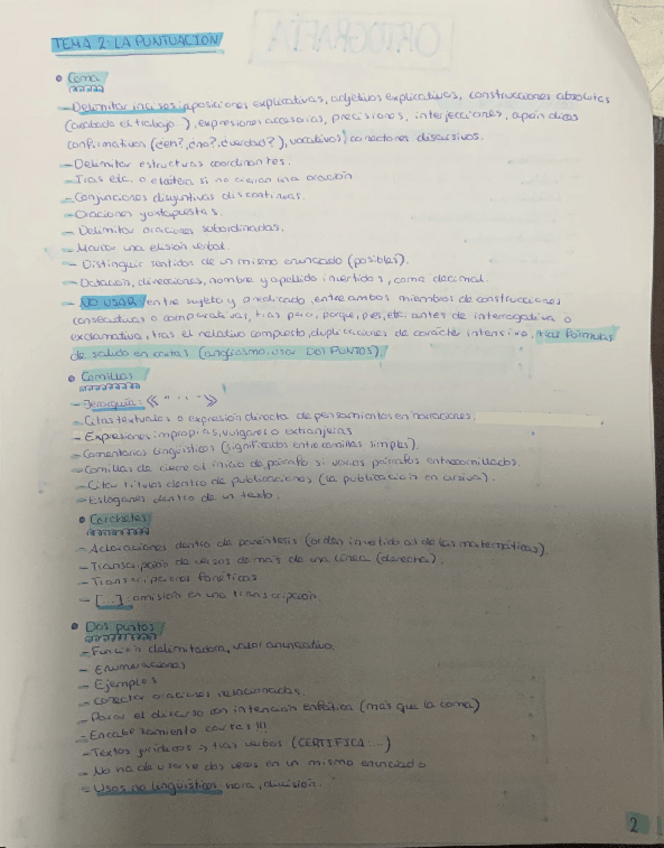 ORTOGRAFÍA
TEMA 2: LA PUNTUACIÓN
• Coma
- Delimitar incisos: aposiciones explicativas, adjetivos explicativos, construcciones absolutas
(acabado el trabajo), expresiones accesorias, precisiones, interjecciones, apéndices
confirmativos (¿eh?, ¿no?, ¿verdad?), vocativos, conectores discursivos.
- Delimitar estructuras coordinantes.
- Tras etc. o etcétera si no cierran una oración
- Conjunciones disyuntivas discontinuas.
- Oraciones yuxtapuestas.
- Delimitar oraciones subordinadas.
- Marcar una elisión verbal.
- Distinguir sentidos de un mismo enunciado (posibles).
- Datación, direcciones, nombre y apellido invertidos, coma decimal.
- NO USAR entre sujeto y predicado, entre ambos miembros de construcciones
consecutivas o comparativas, tras pero, porque, pues, etc. antes de interrogativa o
exclamativa, tras el relativo compuesto, duplicaciones de carácter intensivo, tras fórmulas
de saludo en cartas (anglicismo, usar DOS PUNTOS).
• Comillas
- Jerarquía: « " ' ' " »
- Citas textuales o expresión directa de pensamientos en narraciones.
- Expresiones impropias, vulgares o extranjeras
- Comentarios lingüísticos (significados entre comillas simples).
- Comillas de cierre al inicio de párrafo si varios párrafos entrecomillados.
- Citar títulos dentro de publicaciones (la publicación en cursiva).
- Eslóganes dentro de un texto.
• Corchetes
- Aclaraciones dentro de paréntesis (orden invertido al de las matemáticas).
- Transcripción de versos de más de una línea (derecha).
- Transcripciones fonéticas
- [...] : omisión en una transcripción.
• Dos puntos
- Función delimitadora, valor anunciativo.
- Enumeraciones
- Ejemplos
- Conectar oraciones relacionadas.
- Parar el discurso con intención enfática (más que la coma)
- Encabezamiento cartas !!!
- Textos jurídicos → tras verbos (CERTIFICA:...)
- No ha de usarse dos veces en un mismo enunciado
- Usos no lingüísticos: hora, división.
2